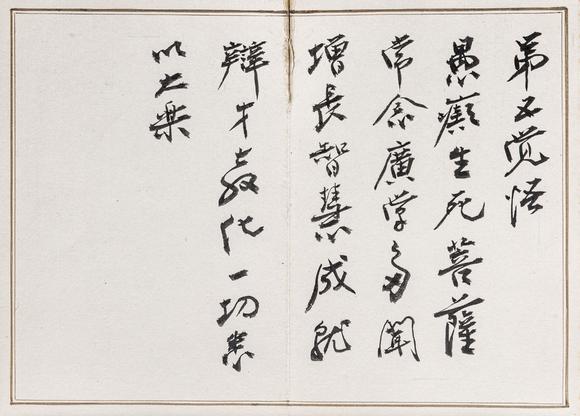 第五觉悟
愚癡生死菩薩
常念廣学多聞
增長智慧成就
辯才教化一切悉
以大樂